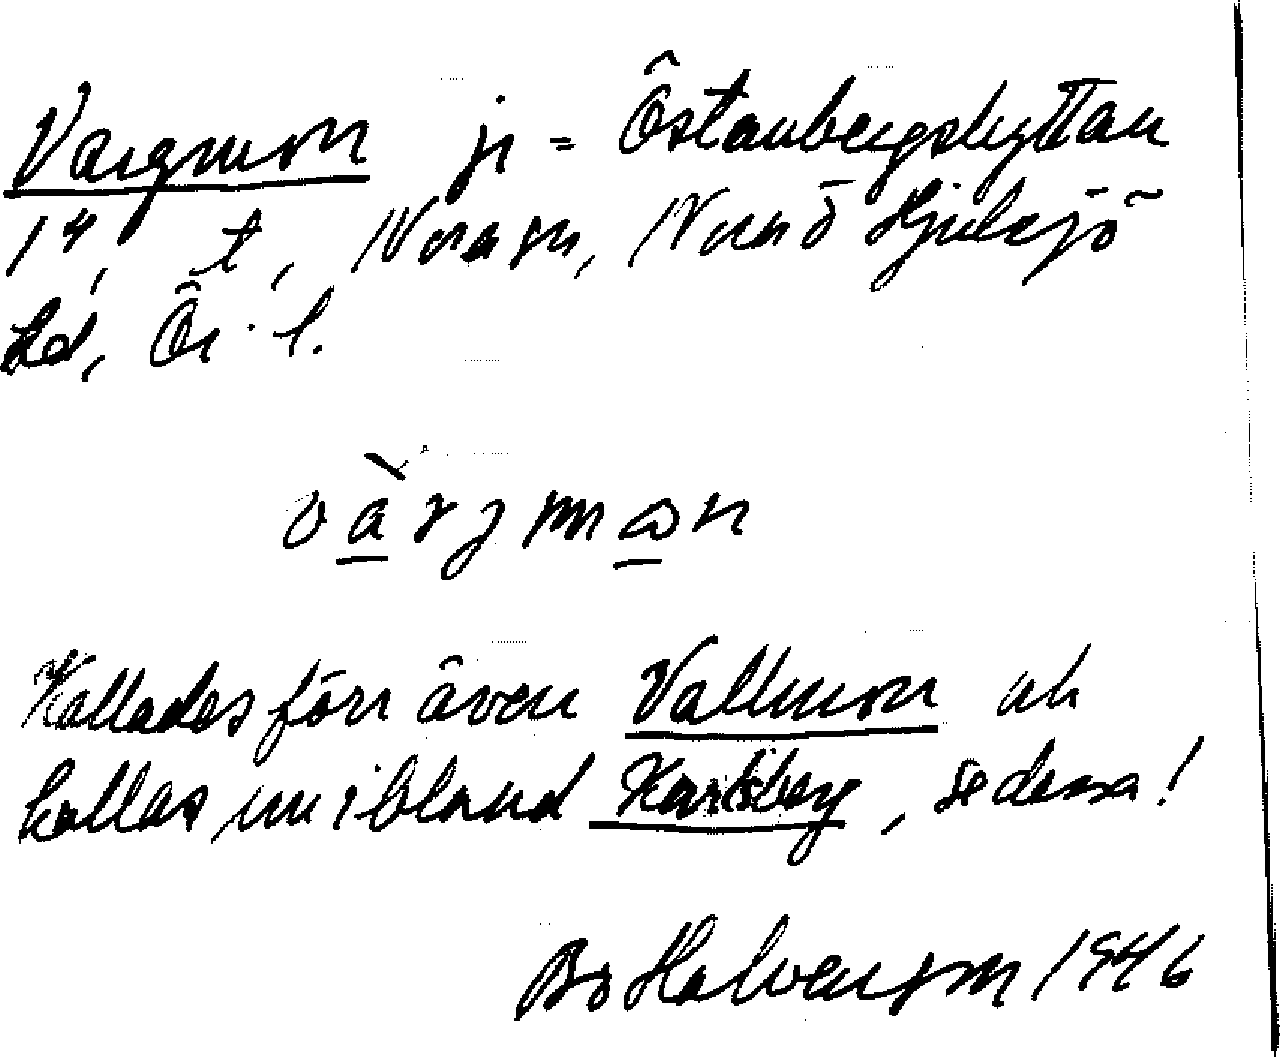 Vargmon jr = Östanbergshyttan
14, t, Nora sn, Nora o Hjulsjö
hd, Ör. l.
vàrjmɷn
Kallades förr även Vallmon och
kallas nu ibland Karlsberg, se dessa!
Bo Halvarson 1946